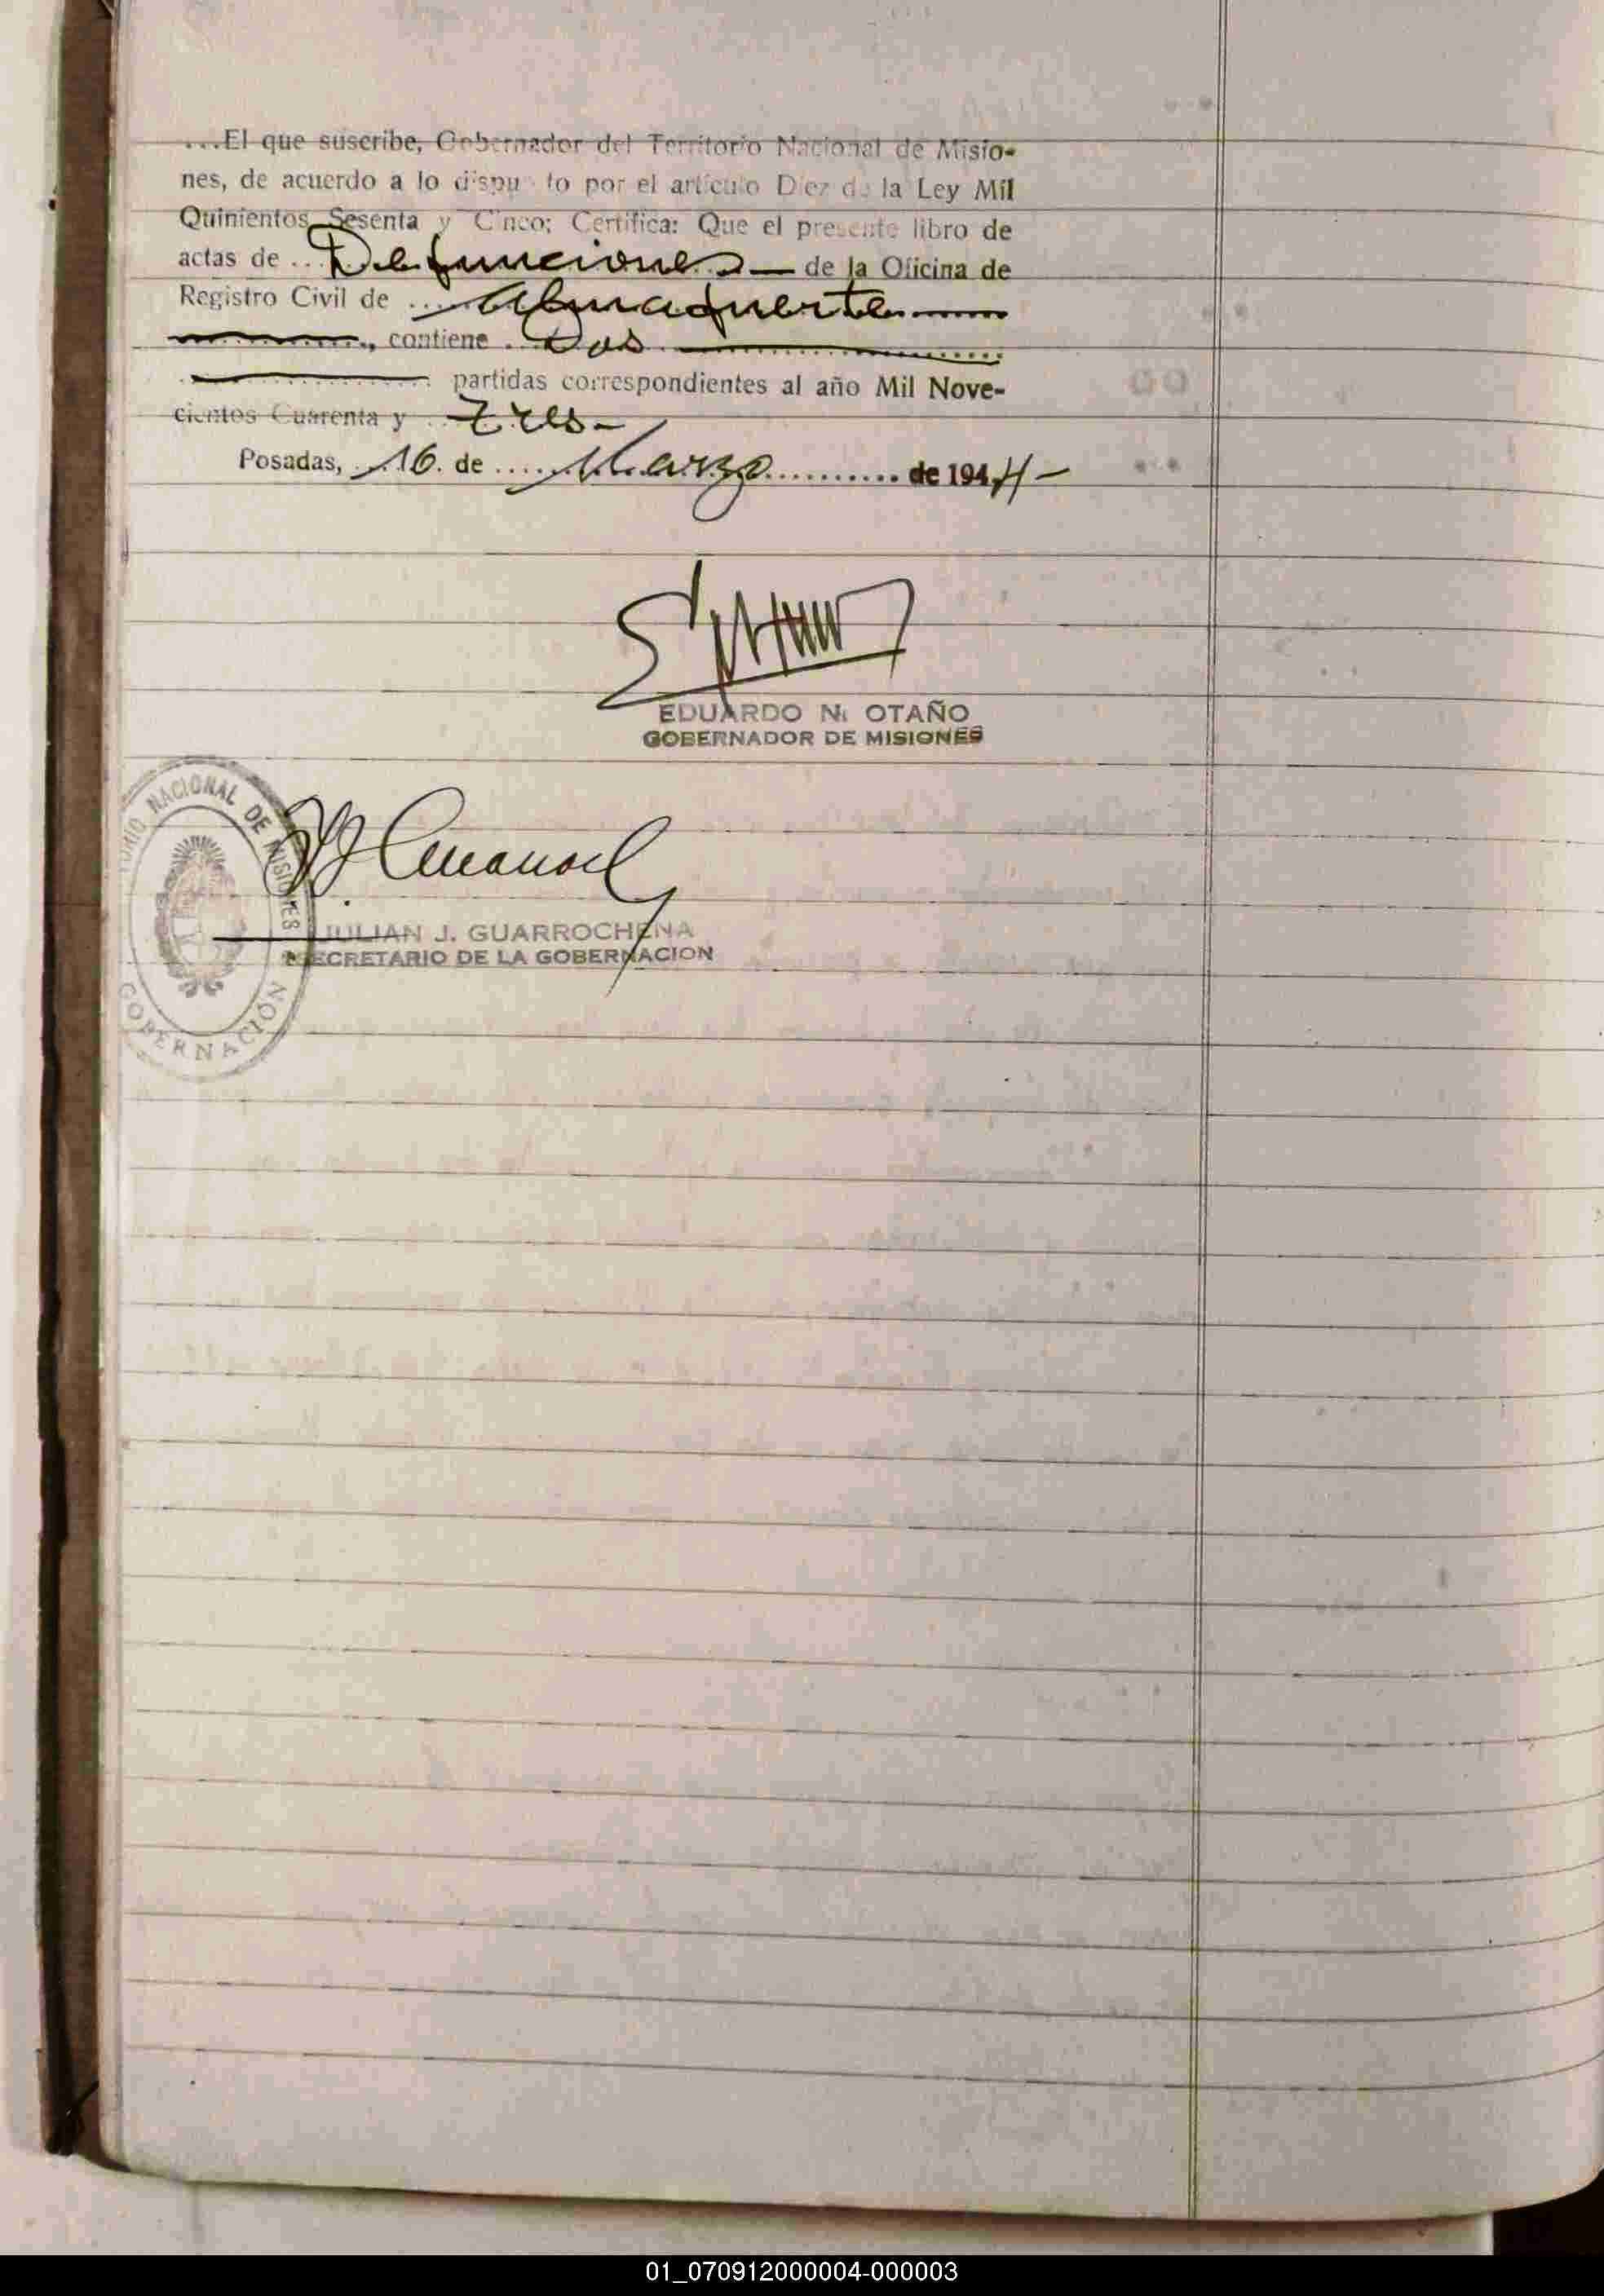 ...El que suscribe, Gobernador del Territorio Nacional de Misio-
nes, de acuerdo a lo dispuesto por el artículo Diez de la Ley Mil
Quinientos Sesenta y Cinco; Certifica: Que el presente libro de
actas de .. Defunciones — de la Oficina de
Registro Civil de .... Almafuerte
, contiene . Dos
partidas correspondientes al año Mil Nove-
cientos Cuarenta y .. Tres-
Posadas, ..16. de ..... Marzo .......... de 1944-
EDUARDO N. OTAÑO
GOBERNADOR DE MISIONES
NACIONAL DE MISIONES
GOBERNACIÓN
JULIAN J. GUARROCHENA
SECRETARIO DE LA GOBERNACION
01_070912000004-000003